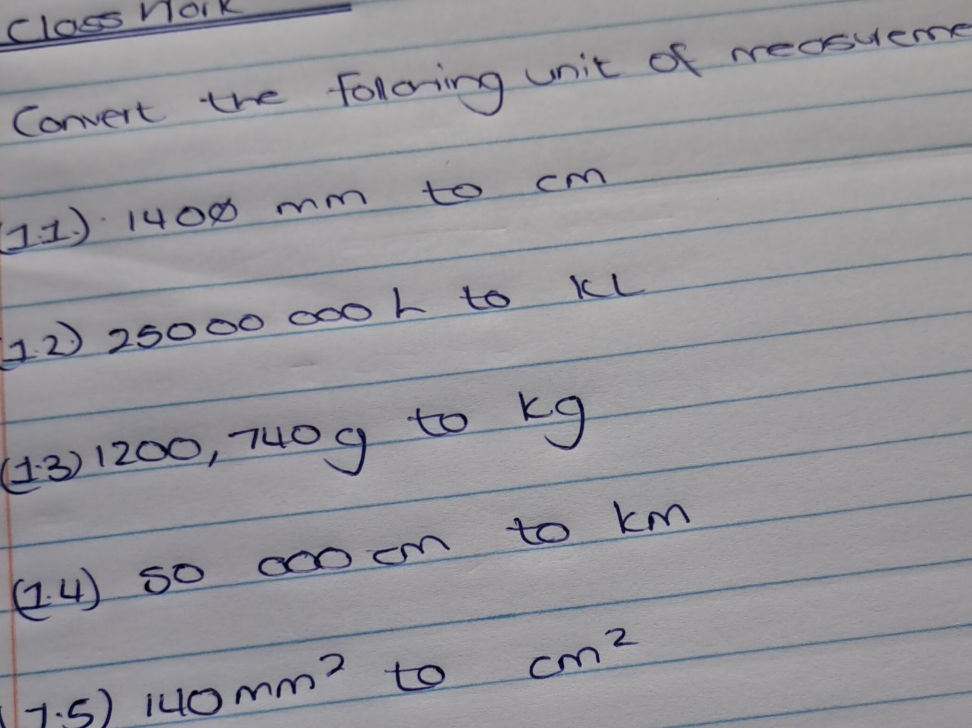 Class Work
Convert the Folowing unit of measureme
(1.1) 1400 mm to cm
1.2) 25000 000 L to KL
(1.3) 1200,740g to kg
(1.4) 50 000 cm to km
1.5) 140mm² to cm²